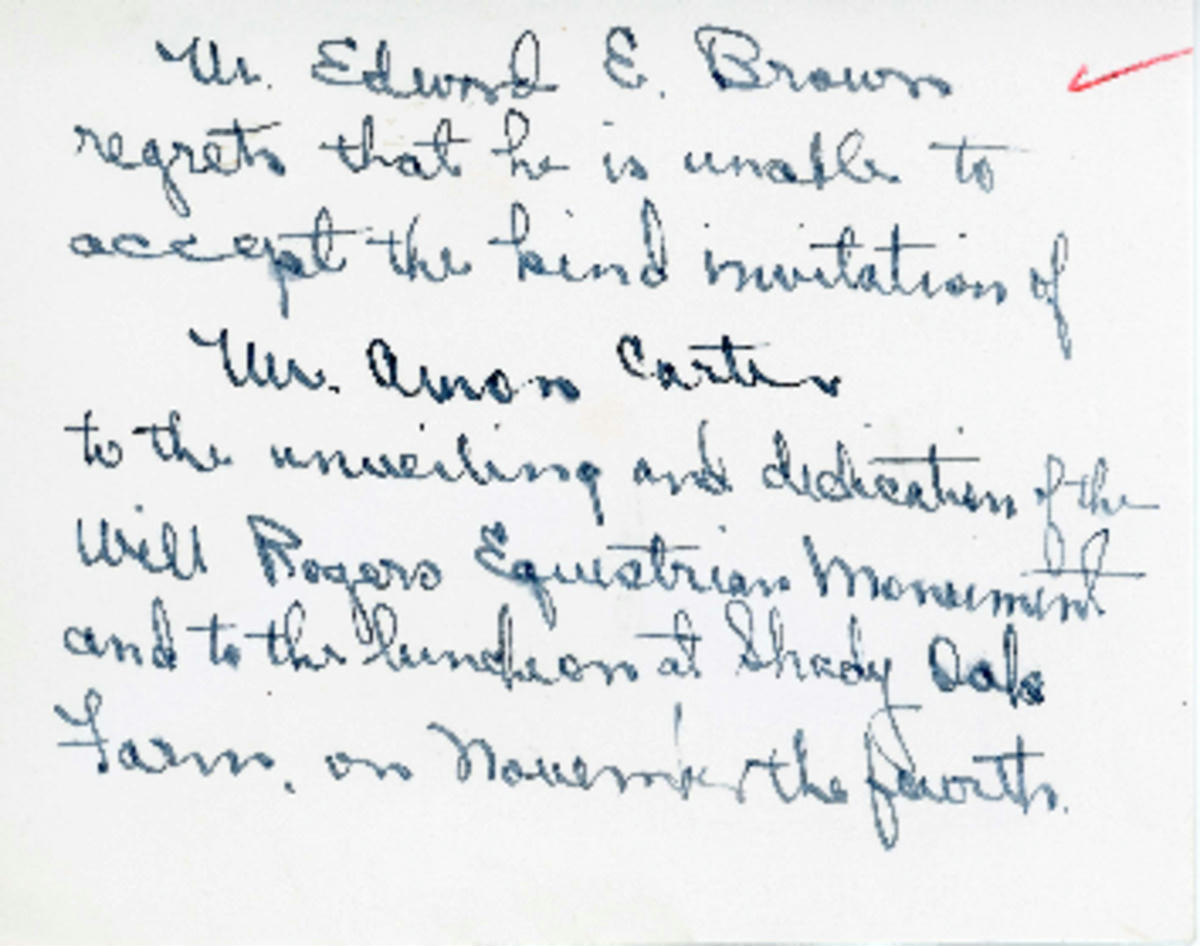 Mr. Edward E. Brown
regrets that he is unable to
accept the kind invitation of
Mr. Amon Carter
to the unveiling and dedication of the
Will Rogers Equestrian Monument
and to the luncheon at Shady Oak
Farm, on November the fourth.